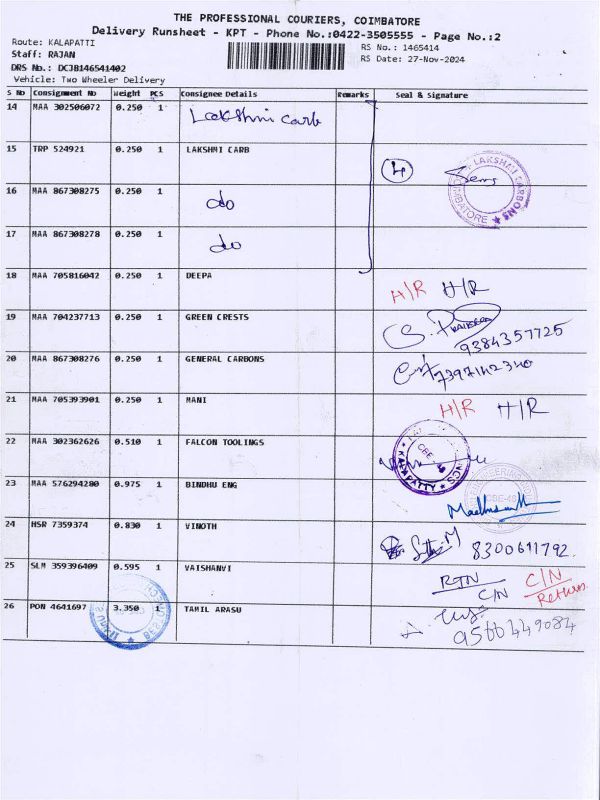 THE PROFESSIONAL COURIERS, COIMBATORE
Delivery Runsheet - KPT - Phone No.:0422-3505555 - Page No.:2
Route: KALAPATTI
RS No.: 1465414
Staff: RAJAN
RS Date: 27-Nov-2024
DRS No.: DCJB146541402
Vehicle: Two Wheeler Delivery
S No Consignment No Weight PCS Consignee Details Remarks Seal & Signature
14 MAA 302506072 0.250 1 Lakshmi carb
15 TRP 524921 0.250 1 LAKSHMI CARB
4
LAKSHMI CARBONS COIMBATORE
16 MAA 867308275 0.250 1 do
17 MAA 867308278 0.250 1 do
18 MAA 705816042 0.250 1 DEEPA H/R H/R
19 MAA 704237713 0.250 1 GREEN CRESTS
9384357725
20 MAA 867308276 0.250 1 GENERAL CARBONS 7397142340
21 MAA 705393901 0.250 1 MANI H/R H/R
22 MAA 302362626 0.510 1 FALCON TOOLINGS
KALAPATTY
23 MAA 576294280 0.975 1 BINDHU ENG
CBE-48
24 HSR 7359374 0.830 1 VINOTH 8300611792.
25 SLM 359396409 0.595 1 VAISHANVI RTN C/N C/N Return
26 PON 4641697 3.350 1 TAMIL ARASU
9566449084